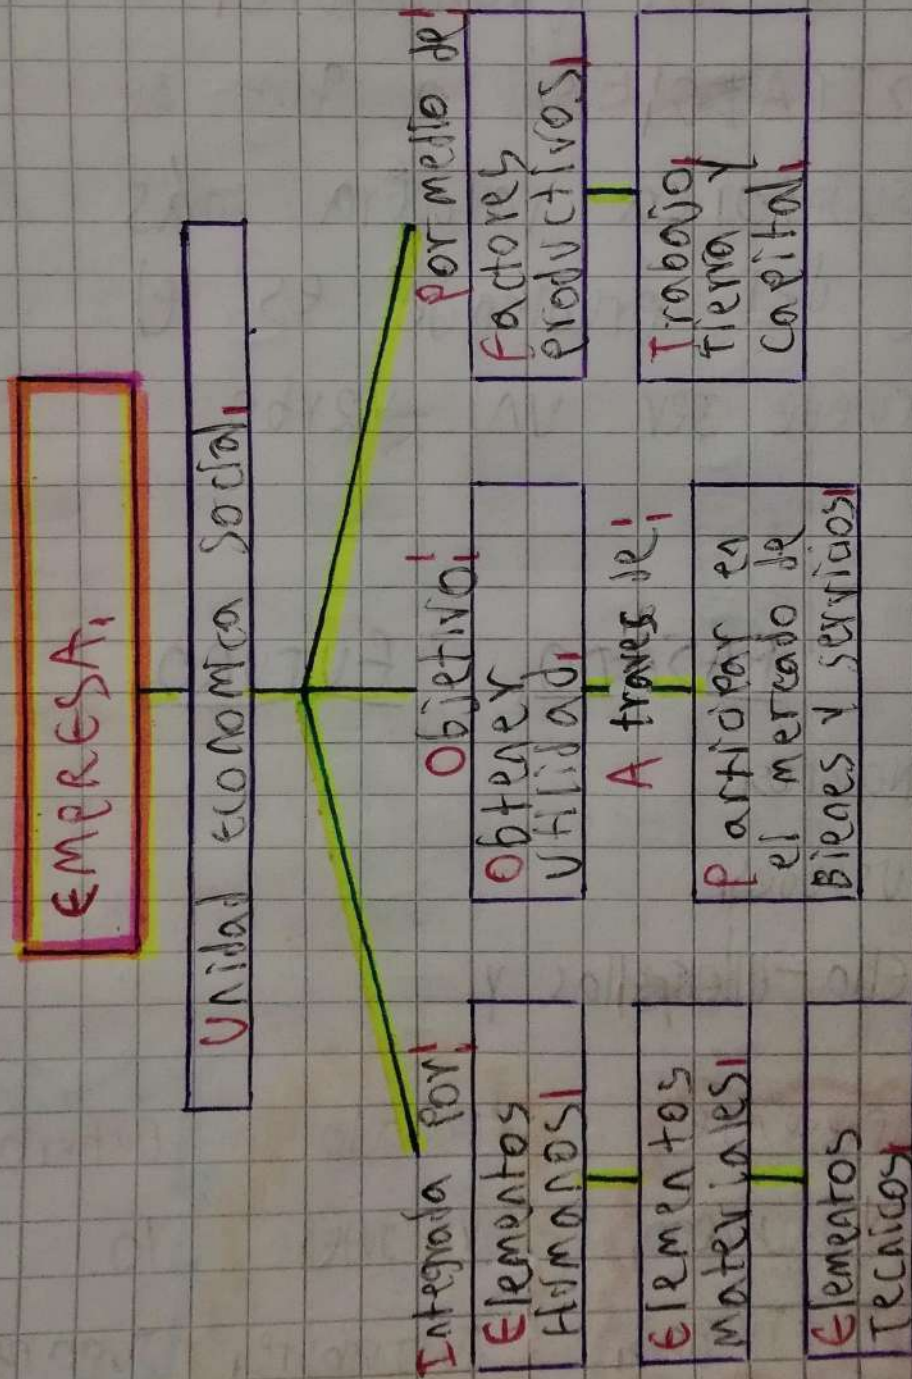 EMPRESA.
Unidad economica social.
Integrada por:
Elementos
Humanos.
Elementos
Materiales.
Elementos
Tecnicos.
Objetivo:
Obtener
Utilidad.
A traves de:
Participar en
el mercado de
Bienes y servicios.
Por medio de:
Factores
productivos.
Trabajo,
Tierra y
capital.